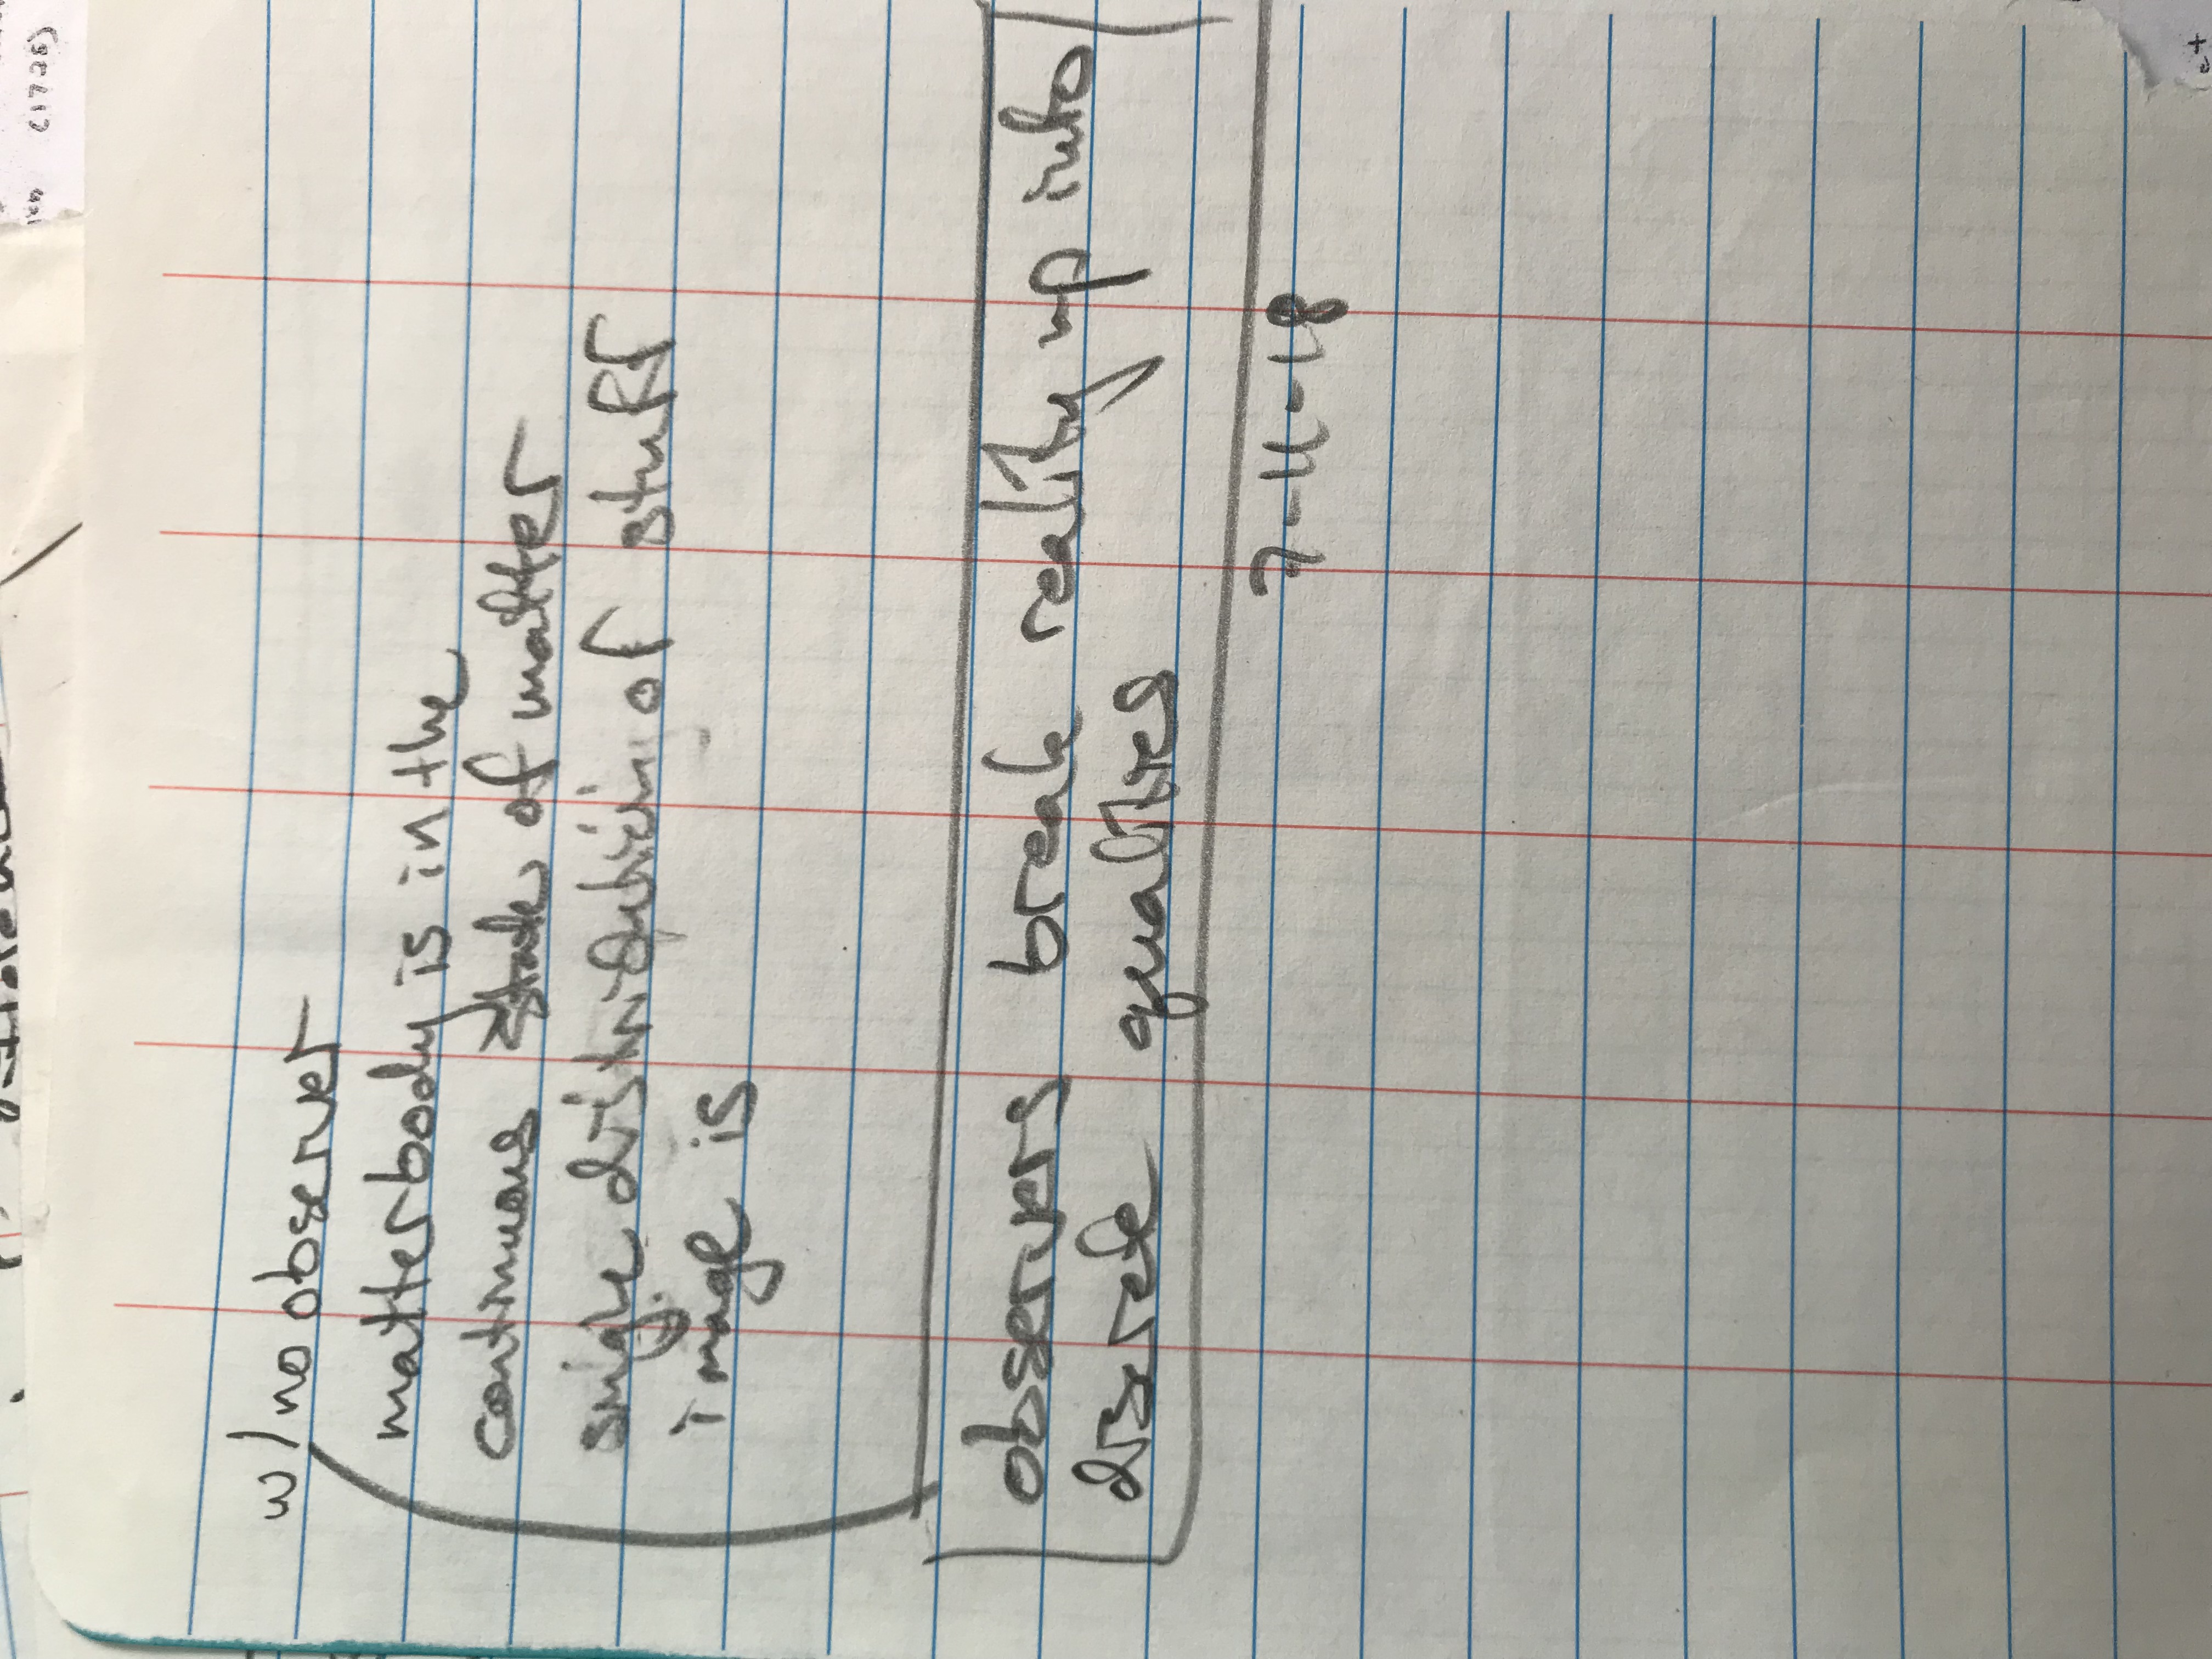 (1725)
w/no observer
matterbody is in the
continuous state of matter
single distribution of stuff
image is
observers break reality up into
discrete qualities
7-11-18